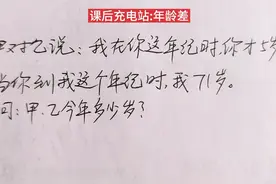 课后充电站:年龄差
甲对乙说：我在你这年纪时，你才5岁
当你到我这个年纪时，我71岁。
问：甲、乙今年多少岁？